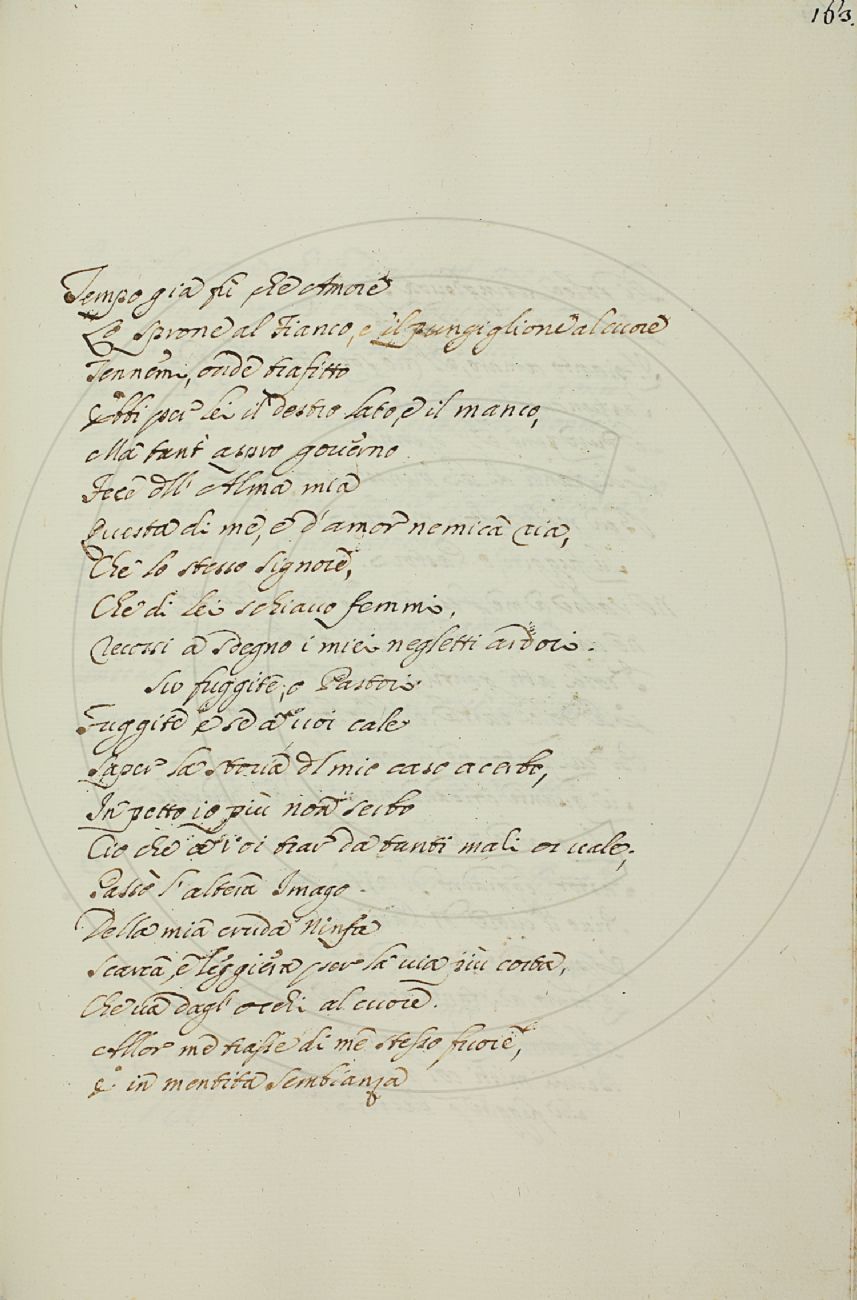 163.
Tempo già fù che Amore
Lo sprone al Fianco, e il pungiglione al cuore
Tennemi, onde trafitto
Ebbi per lei il destro lato, e il manco,
Ma tant' aspro governo
Fece dell' Alma mia
Questa di me, e d'amor nemica ria,
Che lo stesso signore,
Che di lei schiavo femmi,
Recossi a sdegno i miei negletti ardori.
Sù fuggite, o Pastori
Fuggite e se a voi cale
Saper la storia del mio caso acerbo,
In petto io più non serbo
Ciò che a voi trar da tanti mali or vale;
Passò l'altera Imago
Della mia cruda Ninfa
Scarca, e leggiera per la via più corta,
Che và dagl' occhi al cuore.
Allor me trasse di me stesso fuore,
E in mentita sembianza